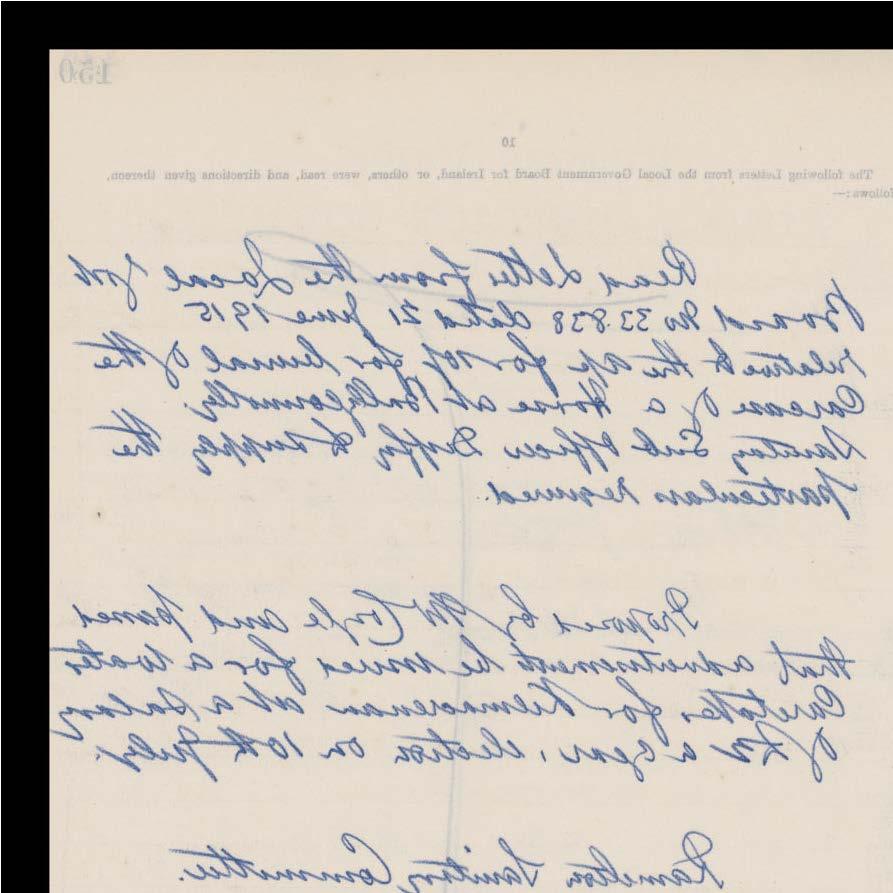 150
10
The following Letters from the Local Government Board for Ireland, or others, were read, and directions given thereon,
follows:—
Read Letter from the Local Govt
Board No 33.838 dated 21 June 1915
relative to the for burial of the
Carcase of a Horse at
Sanitary Sub Officer Duffy to supply the
particulars required.
Proposed by Mr Coyle and passed
that advertisements be issued for a Water
Caretaker for Kilmacrenan at a Salary
of a year, election on 10th July.
Ramelton Sanitary Committee.